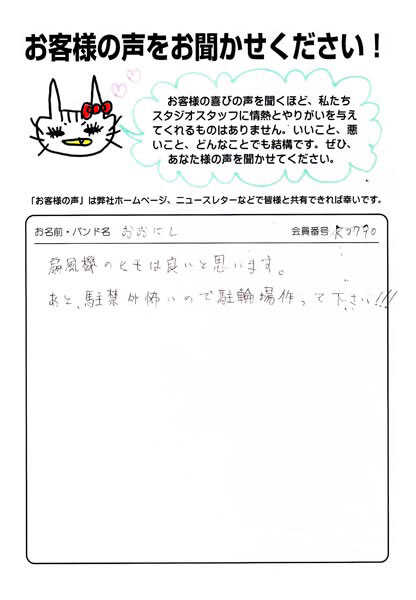 お客様の声をお聞かせください！
お客様の喜びの声を聞くほど、私たち
スタジオスタッフに情熱とやりがいを与え
てくれるものはありません。いいこと、悪
いこと、どんなことでも結構です。ぜひ、
あなた様の声を聞かせてください。
「お客様の声」は弊社ホームページ、ニュースレターなどで皆様と共有できれば幸いです。
お名前・バンド名 おおにし 会員番号 K0790
扇風機のヒモは良いと思います。
あと、駐禁が怖いので駐輪場作って下さい!!!